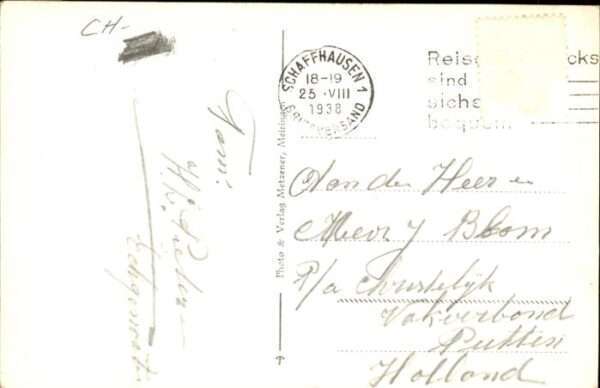 CH-
SCHAFFHAUSEN 1
18-19
25.VIII
1938
BRIEFVERSAND
Reise cks
sind
sichs
bequem
Photo & Verlag Metzener, Meiringen
Fam:
Aan den Heer en
Mevr J Blom
P/a Christelijk
Vakverbond
Putten
Holland